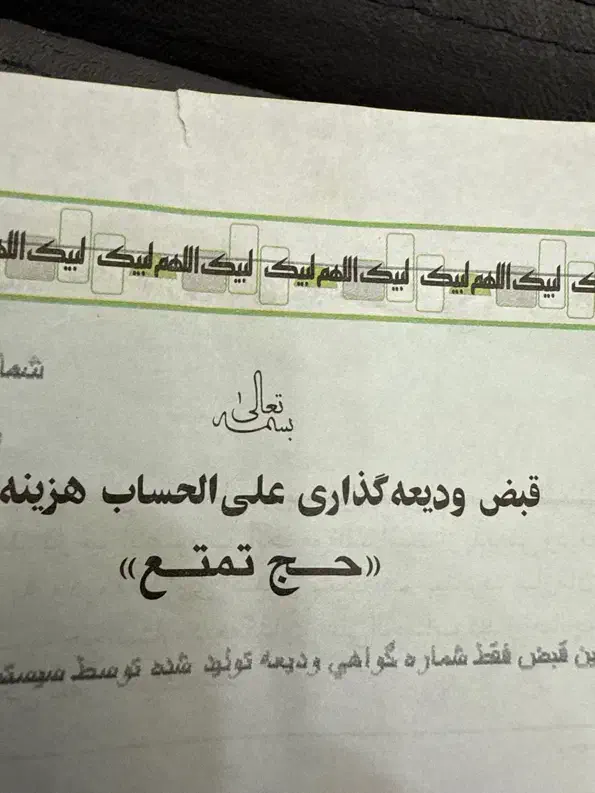 لبیک اللهم لبیک لبیک اللهم لبیک لبیک اللهم لبیک لبیک
بسمه تعالی
قبض ودیعه گذاری علی الحساب هزینه
«حج تمتع»
قبض فقط شماره گواهی ودیعه تولید شده توسط